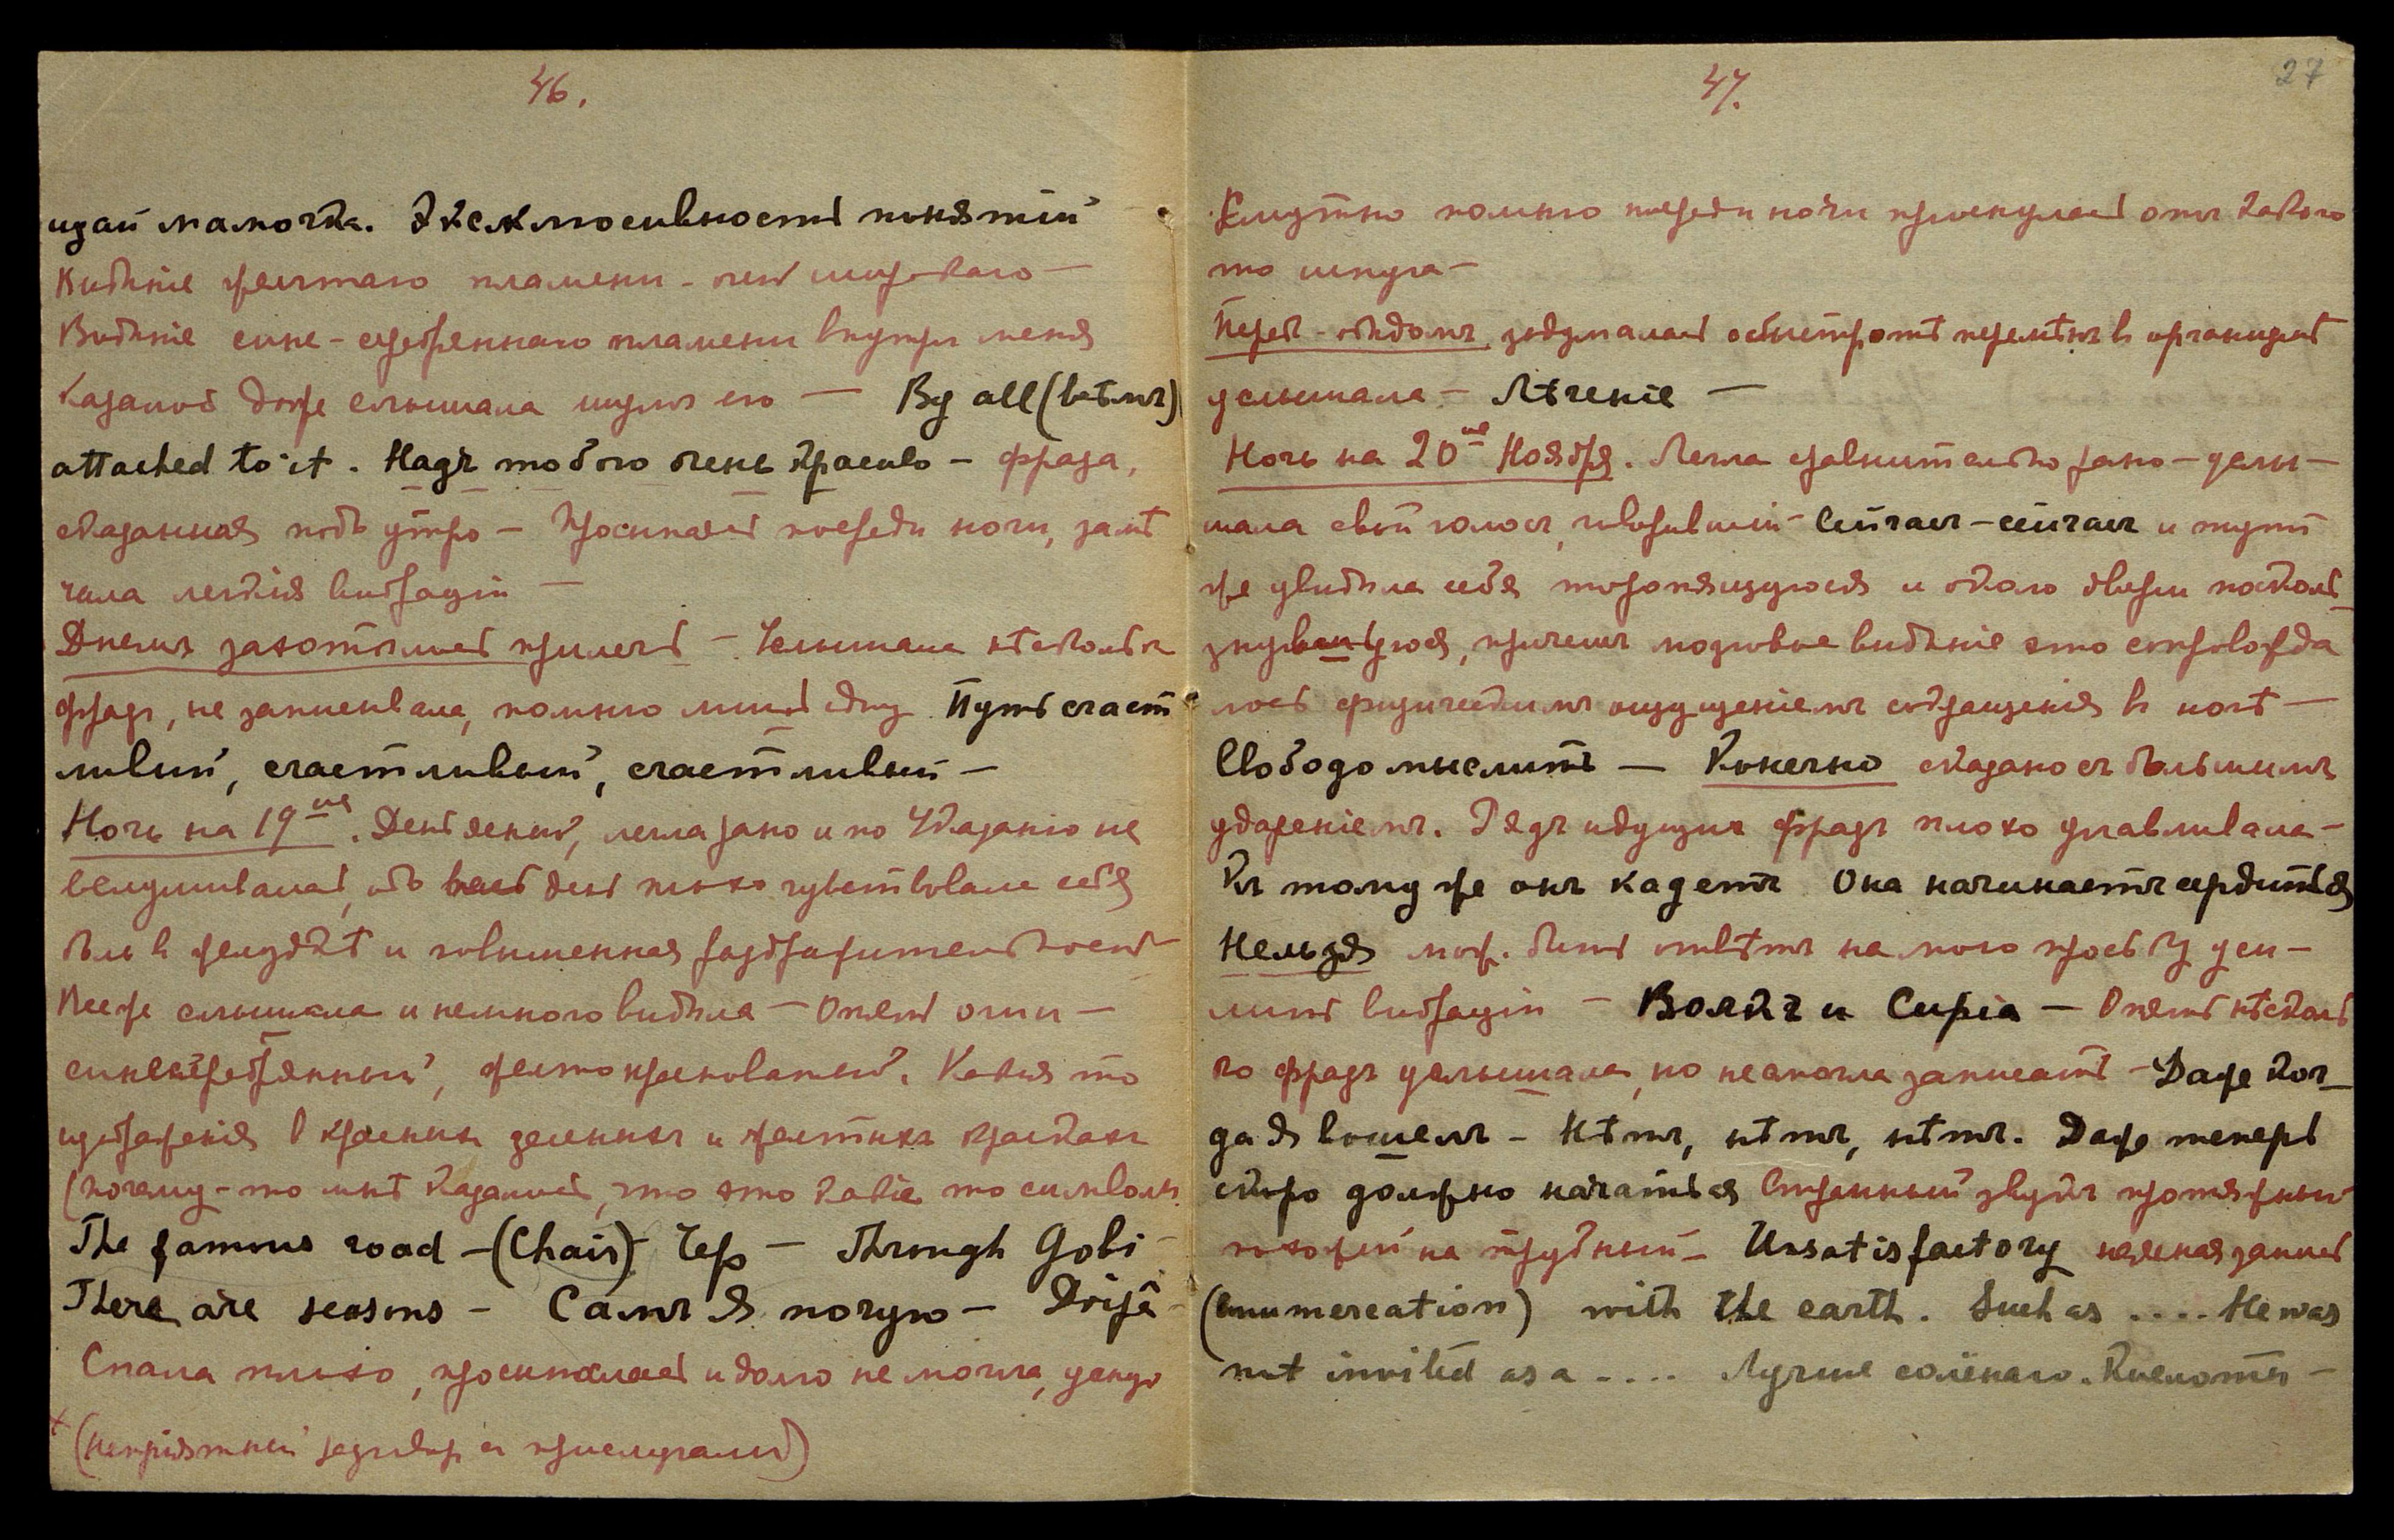 46.
ицай мамочка. Эксклюсивность понятій
Видѣніе желтаго пламени - очень широкаго —
Видѣніе сине-серебреннаго пламени внутри меня
казалось даже слышала шумъ его — By all (вѣтръ)
attached to it. Надъ тобою очень красиво — фраза,
сказанная подъ утро — Просыпаясь посреди ночи, замѣ
чала легкія вибраціи —
Днемъ захотѣлось прилечь — Услышала нѣсколько
фразъ, не записывала, помню лишь одну Путь счаст
ливый, счастливый, счастливый —
Ночь на 19ое. День ясный, легла рано и по Указанію не
вслушивалась, ибо весь день плохо чувствовала себя
боль в желудкѣ и повышенная раздражительность
Все же слышала и немного видѣла — Опять огни —
синесеребрянный, желто красноватый. Какія то
изображенія в красныхъ зеленыхъ и желтыхъ краскахъ
(почему-то мнѣ казалось, что это какіе то символы
The famous road — (Chair) Чер — Through Gobi —
There are seasons — Самъ я ночую —
Спала плохо, просыпалась и долго не могла, уснуть
x (непріятный разговор съ прислугами)
47.
27
Смутно помню посреди ночи проснулась отъ какого
то шпура —
Перед обѣдомъ задумалась о быстротѣ перемѣнъ в организмѣ
услышала — Лѣченіе —
Ночь на 20ое Ноября. Легла сравнительно рано — услы—
шала свой голосъ, говорившій — Сейчасъ - сейчасъ и тутъ
же увидѣла себя торопящуюся и около двери посколь_
знувшуюся, причемъ мозговое видѣніе это сопровожда
лось физическимъ ощущеніемъ сокращенія в ногѣ —
Свободомыслить — Конечно сказано съ большимъ
удареніемъ. Рядъ идущихъ фразъ плохо улавливала —
Къ тому же онъ кадетъ Она начинаетъ сердиться
Нельзя мож. быть отвѣтъ на мою просьбу уси—
лить вибраціи — Волкъ и Сирія — Опять нѣсколь
ко фразъ услышала, но не смогла записать — Даже ког_
да я вошелъ — Нѣтъ, нѣтъ, нѣтъ. Даже теперь
скоро должно начаться Странный звукъ протяжный
похожій на трубный — Unsatisfactory неясная запись
(enumereation) with the earth. Such as .... He was
not invited as a .... Лучше солёнаго. Кислоты —